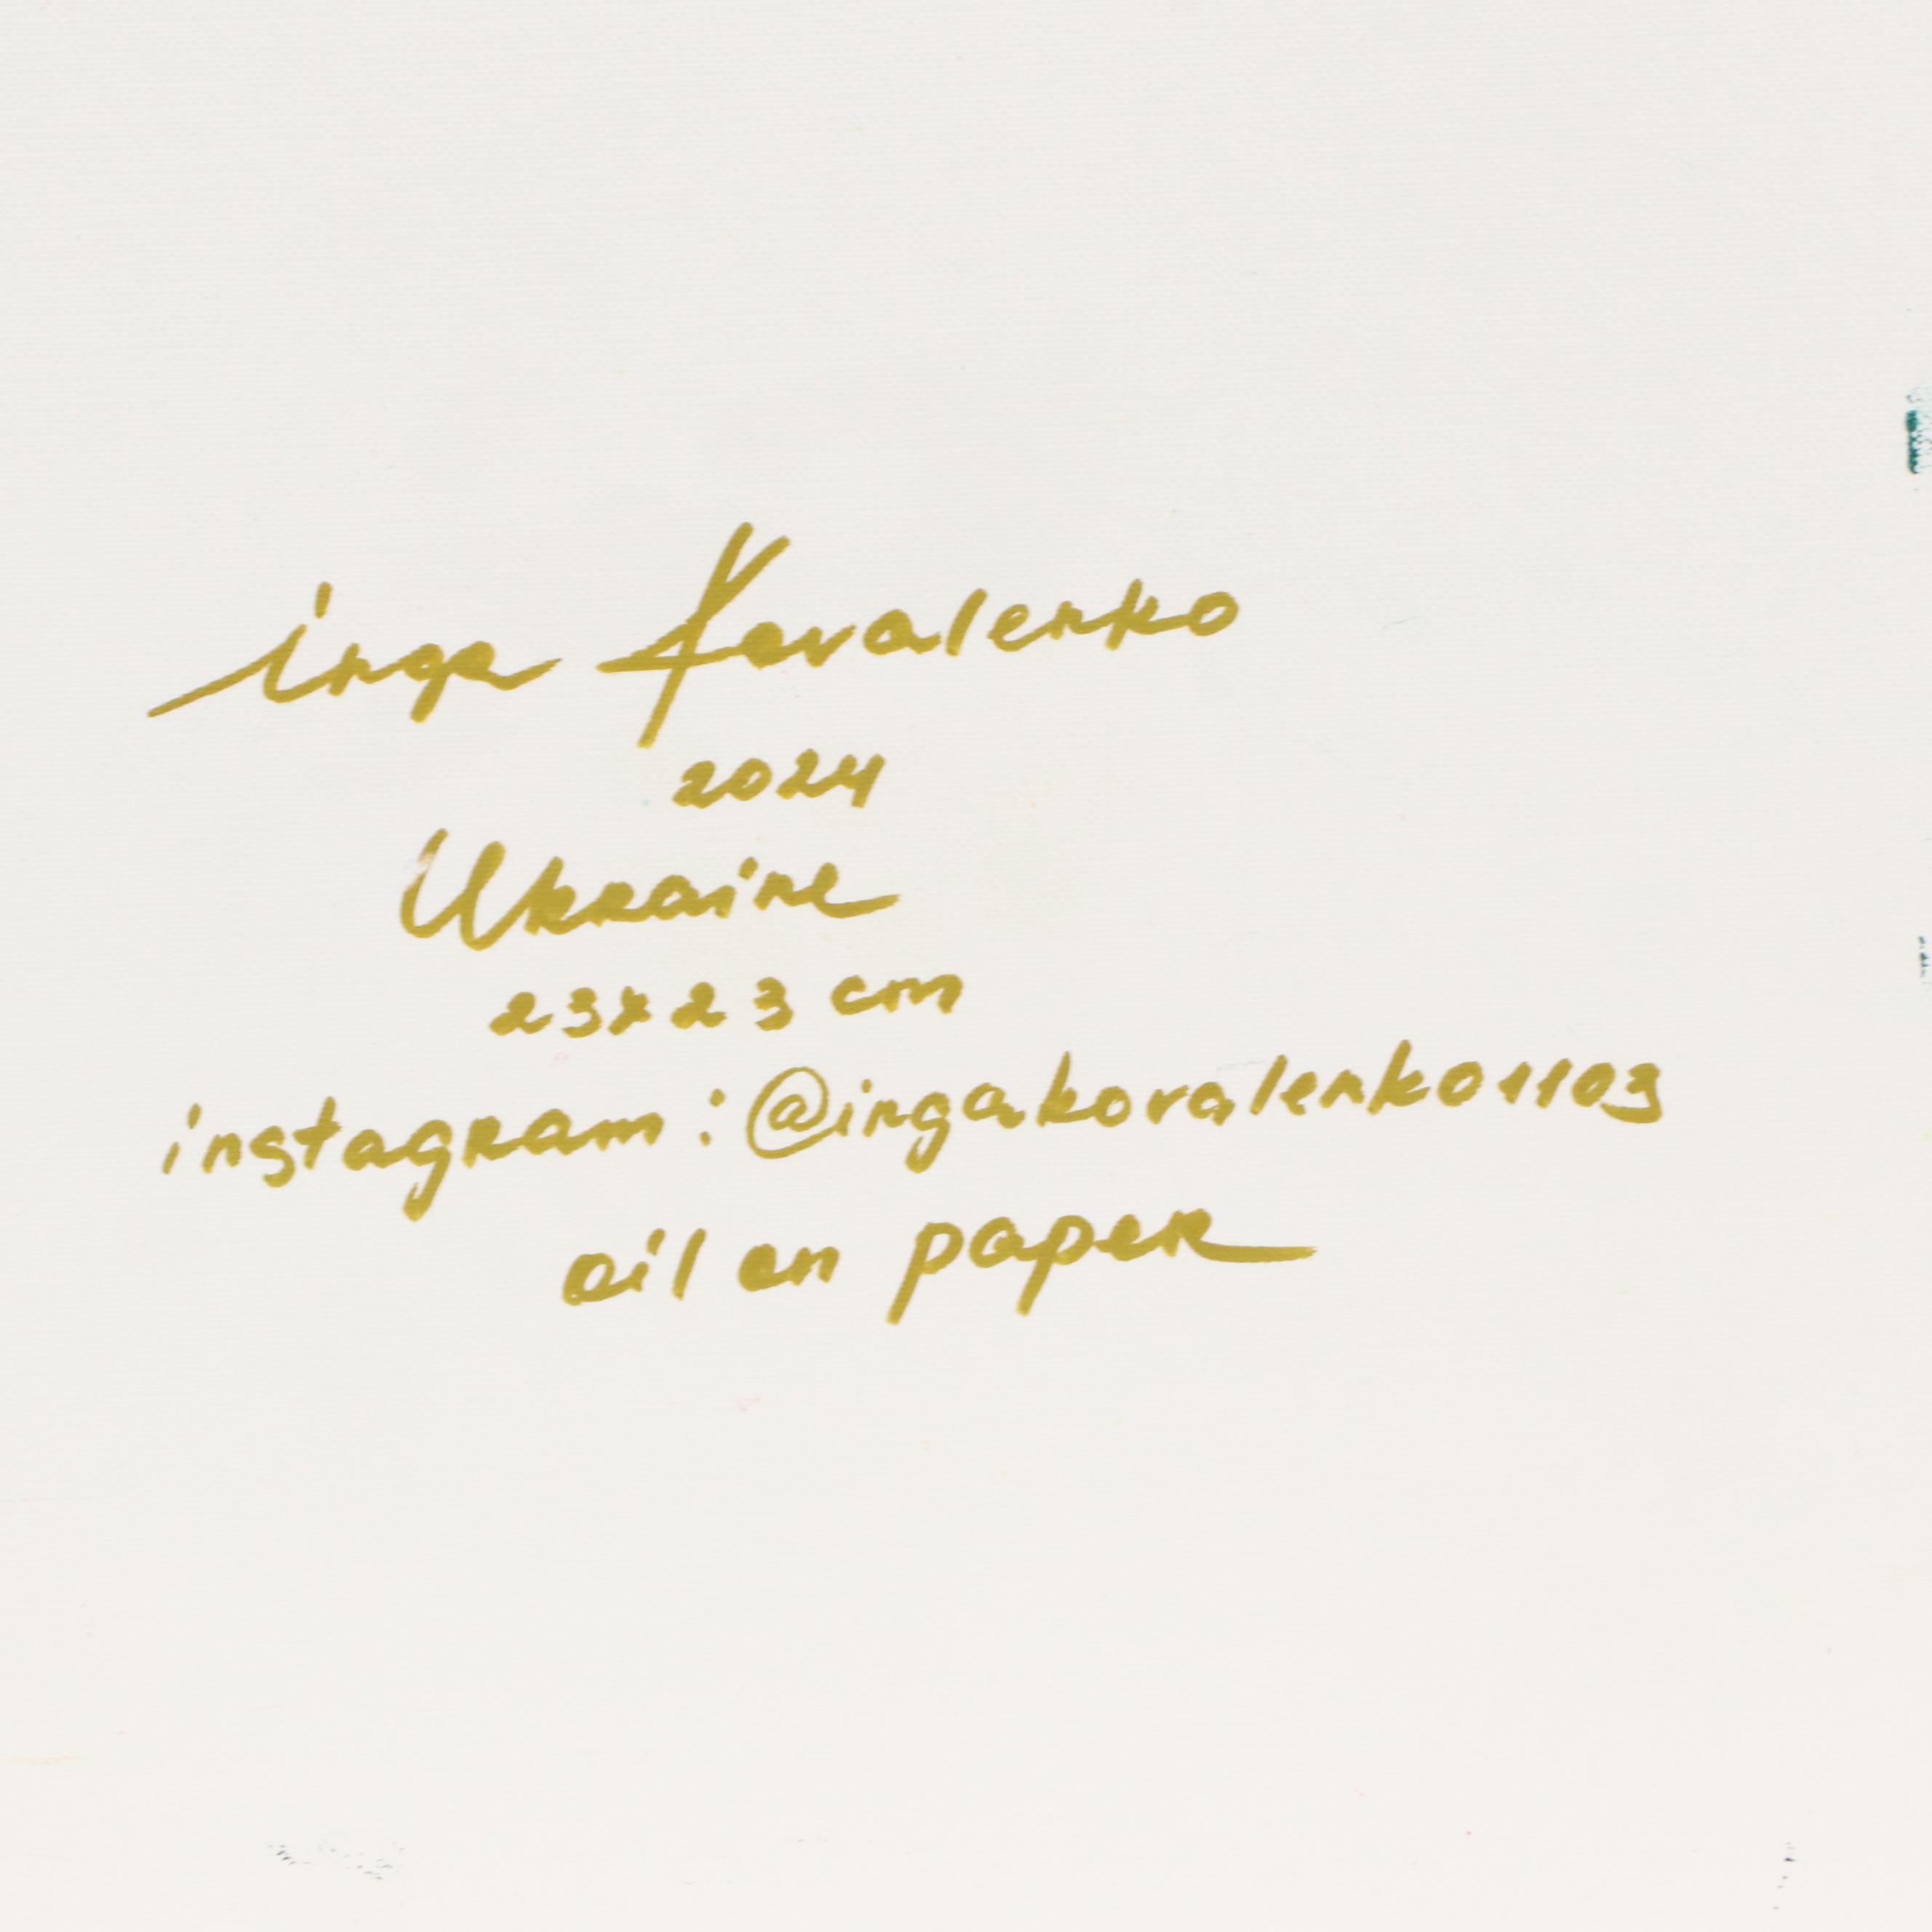 inga Kovalenko
2024
Ukraine
23x23 cm
instagram: @ingakovalenko1103
oil on paper